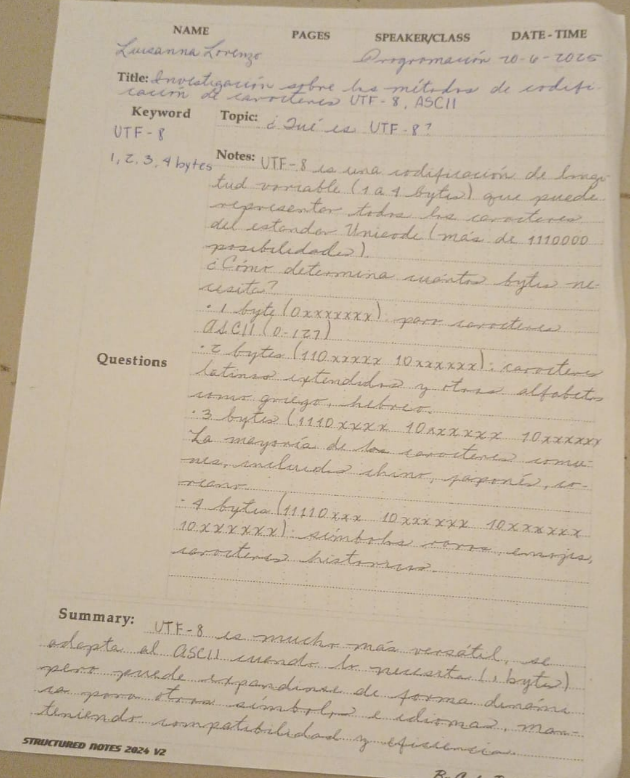 NAME PAGES SPEAKER/CLASS DATE - TIME
Luisanna Lorenzo Programación 20-6-2025
Title: Investigación sobre los métodos de codifi-
cación de caracteres UTF-8, ASCII
Keyword Topic: ¿Qué es UTF-8?
UTF-8
1, 2, 3, 4 bytes
Notes: UTF-8 es una codificación de longi-
tud variable (1 a 4 bytes) que puede
representar todos los caracteres
del estandar Unicode (más de 1110000
posibilidades).
¿Cómo determina cuántos bytes ne-
cesita?
· 1 byte (0xxxxxxx): para caracteres
ASCII (0-127)
· 2 bytes (110xxxxx 10xxxxxx): caracteres
latinos extendidos y otros alfabetos
como griego, hebreo.
· 3 bytes (1110xxxx 10xxxxxx 10xxxxxx
La mayoría de los caracteres comu-
nes, incluidos chino, japonés, co-
reano
· 4 bytes (11110xxx 10xxxxxx 10xxxxxx
10xxxxxx): símbolos raros, emojis,
caracteres historicos.
Questions
Summary: UTF-8 es mucho más versátil, se
adapta al ASCII cuando lo necesita (1 byte)
pero puede expandirse de forma dinámi
ca para otros símbolos e idiomas, man-
teniendo compatibilidad y eficiencia.
STRUCTURED NOTES 2024 V2